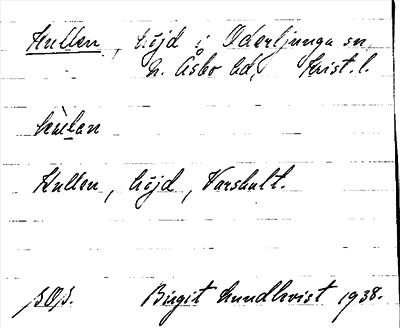 Kullen, höjd i Oderljunga sn,
N. Åsbo hd, Krist. l.
Kullen, höjd, Varshult.
Birgit Lundkvist 1938.